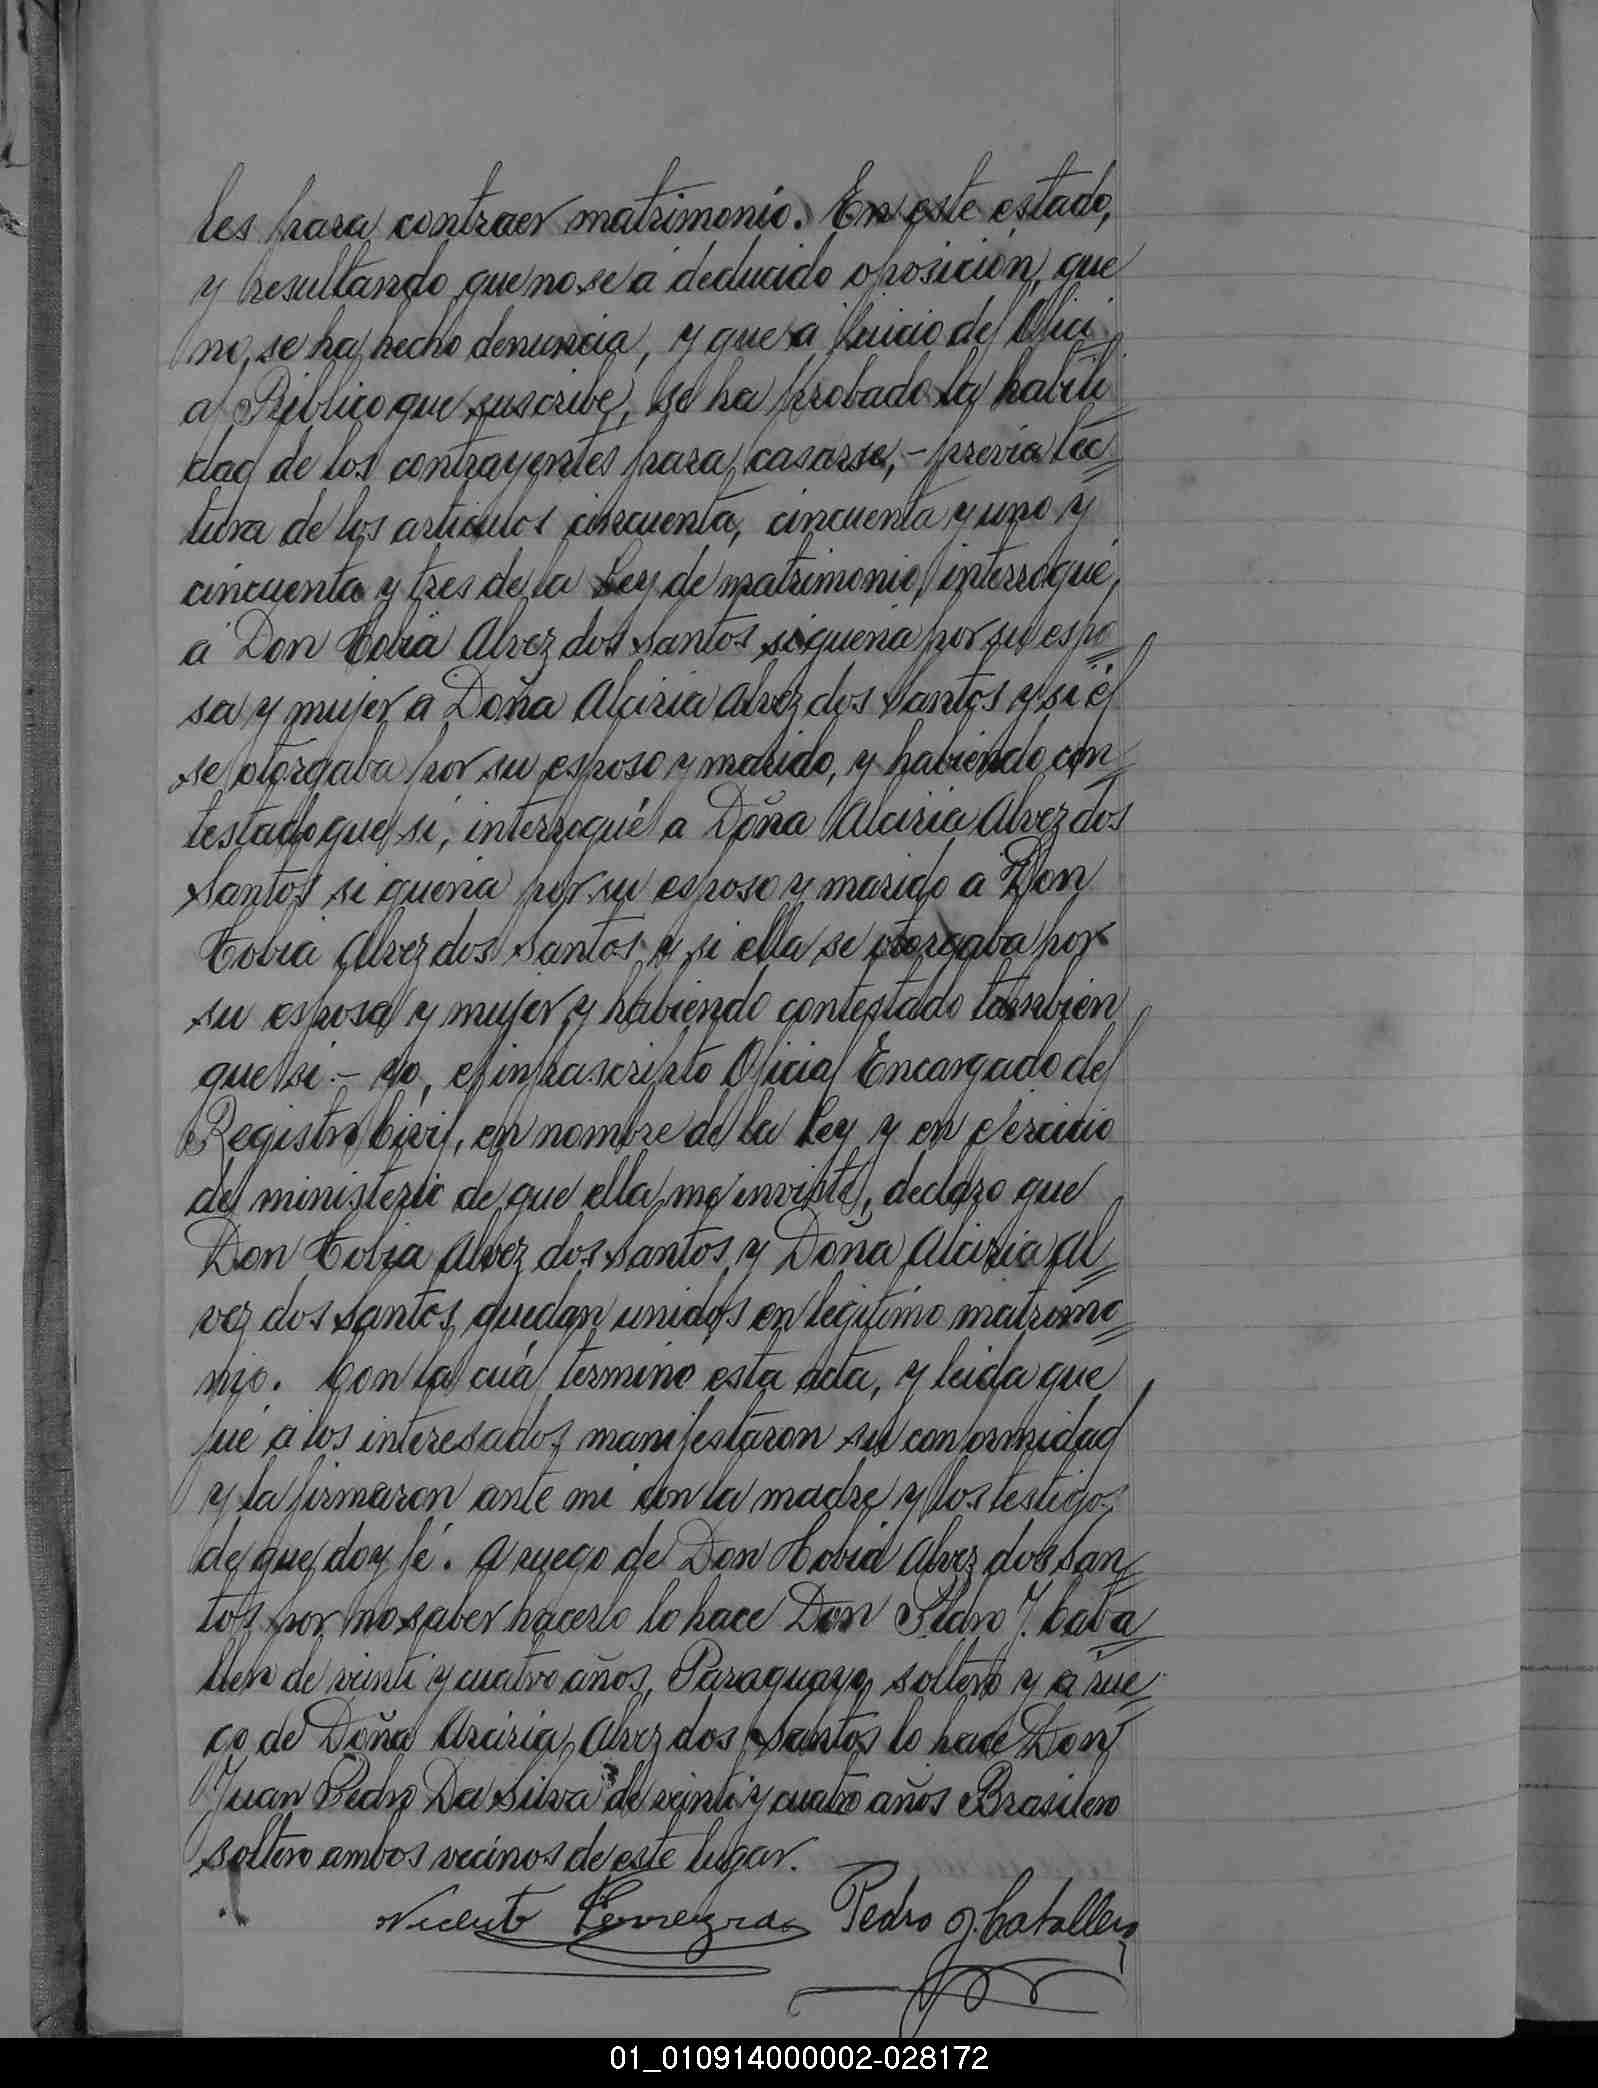 les para contraer matrimonio. En este estado,
y resultando que no se á deducido oposición, que
no, se ha hecho denuncia, y que a juicio del Ofici
al Público que suscribe, se ha probado la habili
dad de los contrayentes para casarse, - previa lec=
tura de los articulos cincuenta, cincuenta y uno y
cincuenta y tres de la Ley de matrimonio, interrogué,
á Don Tobia Alvez dos Santos si queria por su espo=
sa y mujer a Doña Alciria Alvez dos Santos y si él
se otorgaba por su esposo y marido, y habiendo con=
testado que si, interrogué a Doña Alciria Alvez dos
Santos si queria por su esposo y marido a Don
Tobia Alvez dos Santos y si ella se otorgaba por
su esposa y mujer y habiendo contestado también
que si - yo, el infrascripto Oficial Encargado del
Registro Civil, en nombre de la Ley y en ejercicio
del ministerio de que ella me inviste, declaro que
Don Tobia Alvez dos Santos y Doña Alciria Al=
vez dos Santos quedan unidos en legitimo matrimo=
nio. Con la cuál terminó esta acta, y leida que
fué á los interesados manifestaron su conformidad
y la firmaron ante mi con la madre y los testigos
de que doy fé. A ruego de Don Tobia Alvez dos San=
tos por no saber hacerlo lo hace Don Pedro J. Caba=
llero de veinti y cuatro años, Paraguayo, soltero y á rue=
go de Doña Arciria Alvez dos Santos lo hace Don
Juan Pedro Da Silva de veinti y cuatro años Brasilero
soltero ambos vecinos de este lugar.
Vicente Pedro J. Caballero
01_010914000002-028172